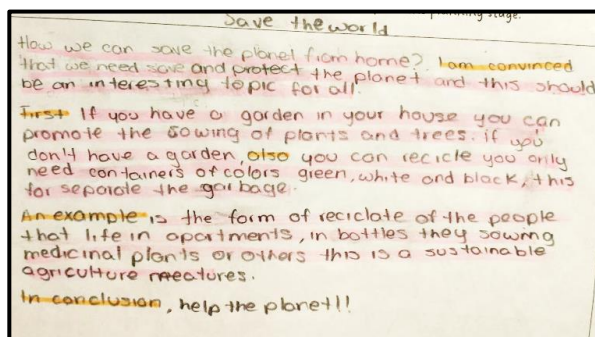 planning stage.
Save the world
How we can save the planet from home? I am convinced
that we need save and protect the planet and this should
be an interesting topic for all.
First If you have a garden in your house you can
promote the sowing of plants and trees. if you
don't have a garden, also you can recicle you only
need containers of colors green, white and black, this
for separate the garbage.
An example is the form of reciclate of the people
that life in apartments, in bottles they sowing
medicinal plants or others this is a sustainable
agriculture
In conclusion, help the planet!!